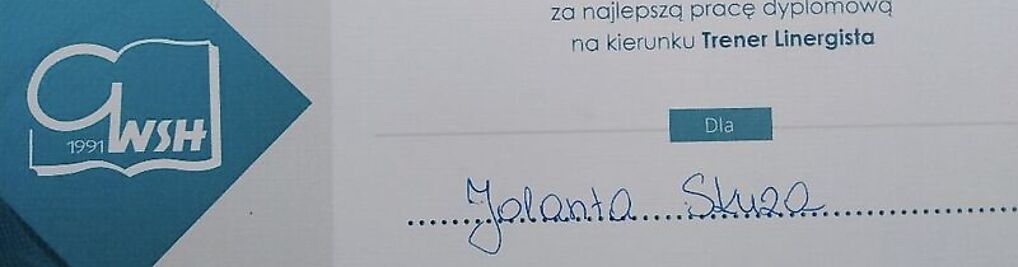 za najlepszą pracę dyplomową
na kierunku Trener Linergista
1991 WSH
Dla
Jolanta Skuza